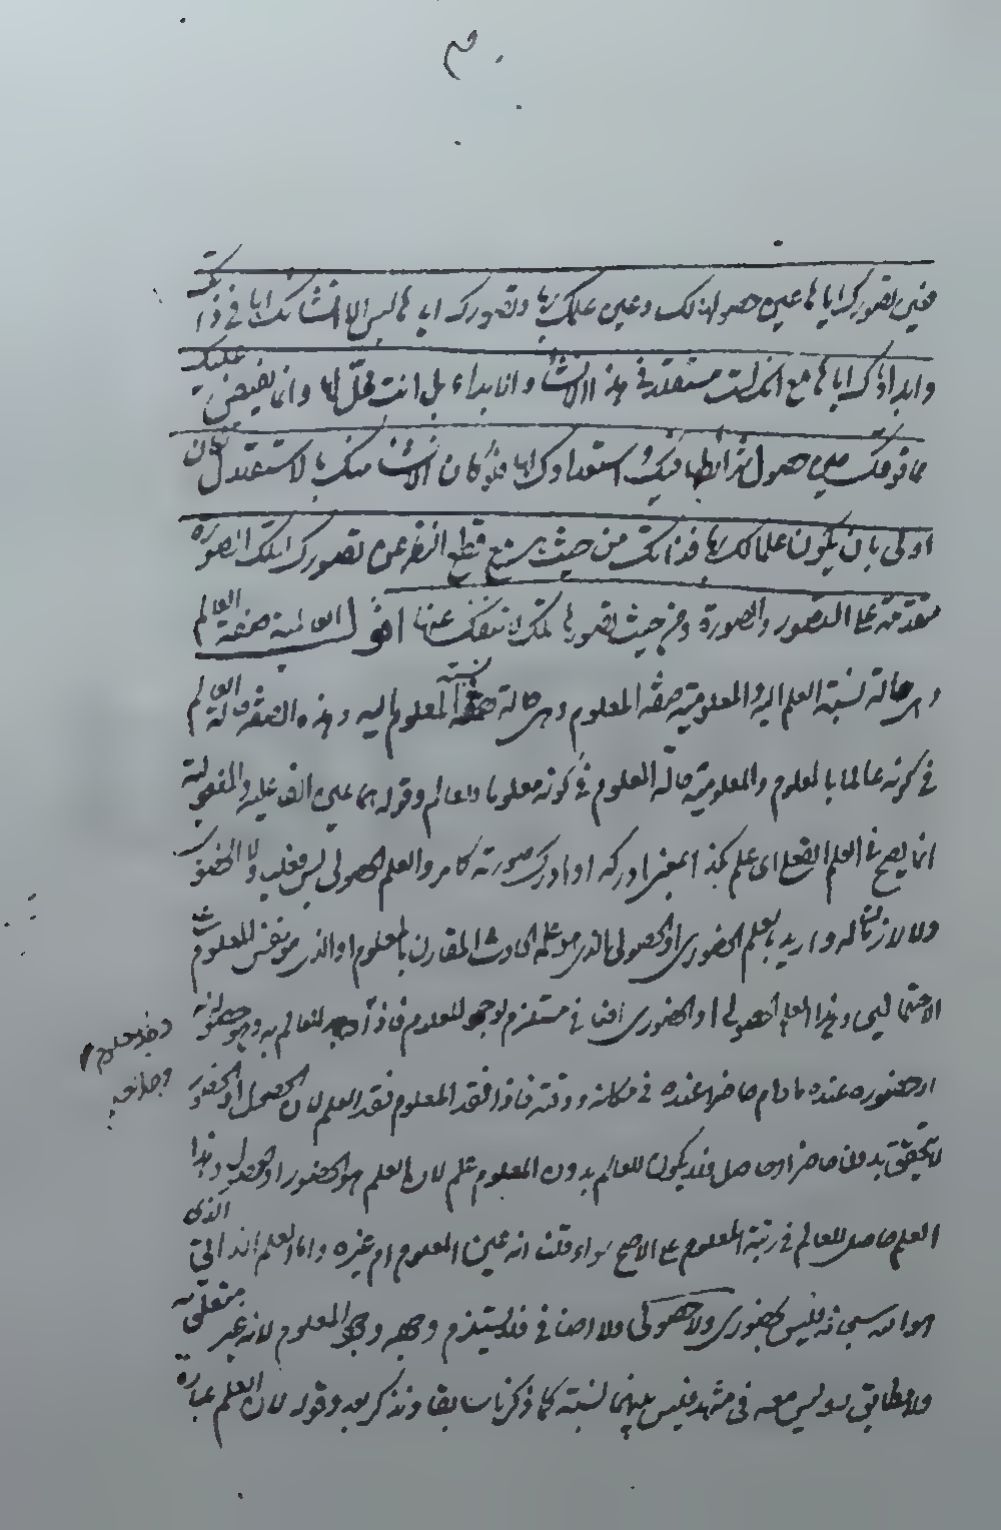 فعين تصورك اياها عين حصولها لك وعين علمك بها وتصورك اياها ليس الا انشائك اياها في ذاتك
وابداؤك اياها مع انك لست مستقلا في هذا الانشاء والابداء بل انت محل لها وانما يفيض عليك
مما فوقك حين حصول شرائطها فيك واستعدادك لها فلو كان الانشاء منك بالاستقلال لكان
اولى بان يكون علما لك بها فذاتك من حيث هي مع قطع النظر عن تصورك لتلك الصورة
متقدمة على التصور والصورة ومن حيث تصورها لم تنفك عنها اقول العالمية صفة العالم
وهي حالة نسبة العلم اليه والمعلومية صفة المعلوم وهي حالة نسبة المعلوم اليه وهذه الصفة حالة العالم
في كونه عالما بالمعلوم والمعلومية حالة المعلوم في كونه معلوما للعالم وقوله هما عين الفاعلية والمفعولية
انما يصح في العلم الفعلي اي علم كذا بمعنى ادركه او ادرك صورته كما مر والعلم الحصولي ليس فعليا ولا الحضوري
ولا لازما له واريد بالعلم الحضوري او الحصولي الذي هو علمه الحادث المقارن بالمعلوم او الذي هو نفس المعلوم على
الاحتمالين وهذا العلم الحصولي او الحضوري اضافي مستلزم لوجود المعلوم فاذا وجد للعالم به وهو حصوله
وجد معلوم
وجد علمه
او حضوره عنده ما دام حاضرا عنده في مكانه ووقته فاذا فقد المعلوم فقد العلم لان الحصول او الحضور
لا يتحقق بدون حاضر او حاصل فلا يكون للعالم بدون المعلوم علم لان العلم هو الحضور او الحصول وهذا
العلم حاصل للعالم في رتبة المعلوم على الاصح سواء قلت انه عين المعلوم ام غيره واما العلم الذاتي الذي
هو الله سبحانه فليس بحضوري ولا حصولي ولا اضافي فلا يستلزم وجوده وجود المعلوم لانه غير متعلق به
ولا مطابق له وليس معه في مشهد فليس بينهما نسبة كما ذكرنا سابقا ونذكر بعد وقوله لان العلم عبارة